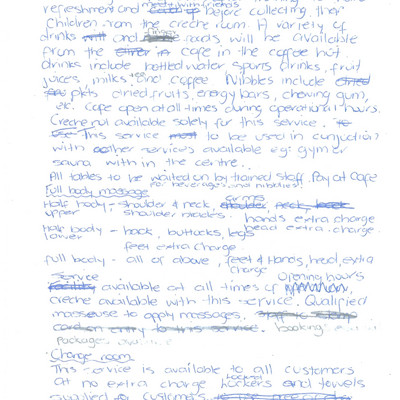 refreshment and meet with friends before collecting their
children from the creche room. A variety of
drinks and foods, will be available
from the cafe in the coffee hut.
drinks include bottled water sports drinks, fruit
juices, milks tea and coffee Nibbles include
pkts dried fruits, energy bars, chewing gum,
etc. Cafe open at all times during operational hours.
Creche not available solely for this service.
This service to be used in conjuction
with other services available eg: gym or
sauna with in the centre.
All tables to be waited on by trained staff. Pay at Cafe
for beverages and nibbles.
Full body massage
Half body - shoulder & neck, arms
upper shoulder blades. hands extra charge
head extra charge.
Half body - back, buttocks, legs
lower feet extra charge
full body - all of above, feet & hands, head, extra
charge
Service opening hours
available at all times of
creche available with this service. Qualified
masseuse to apply massages,
booking
packages
Change room
This service is available to all customers
at no extra charge Lockers and towels
supplied for customers.